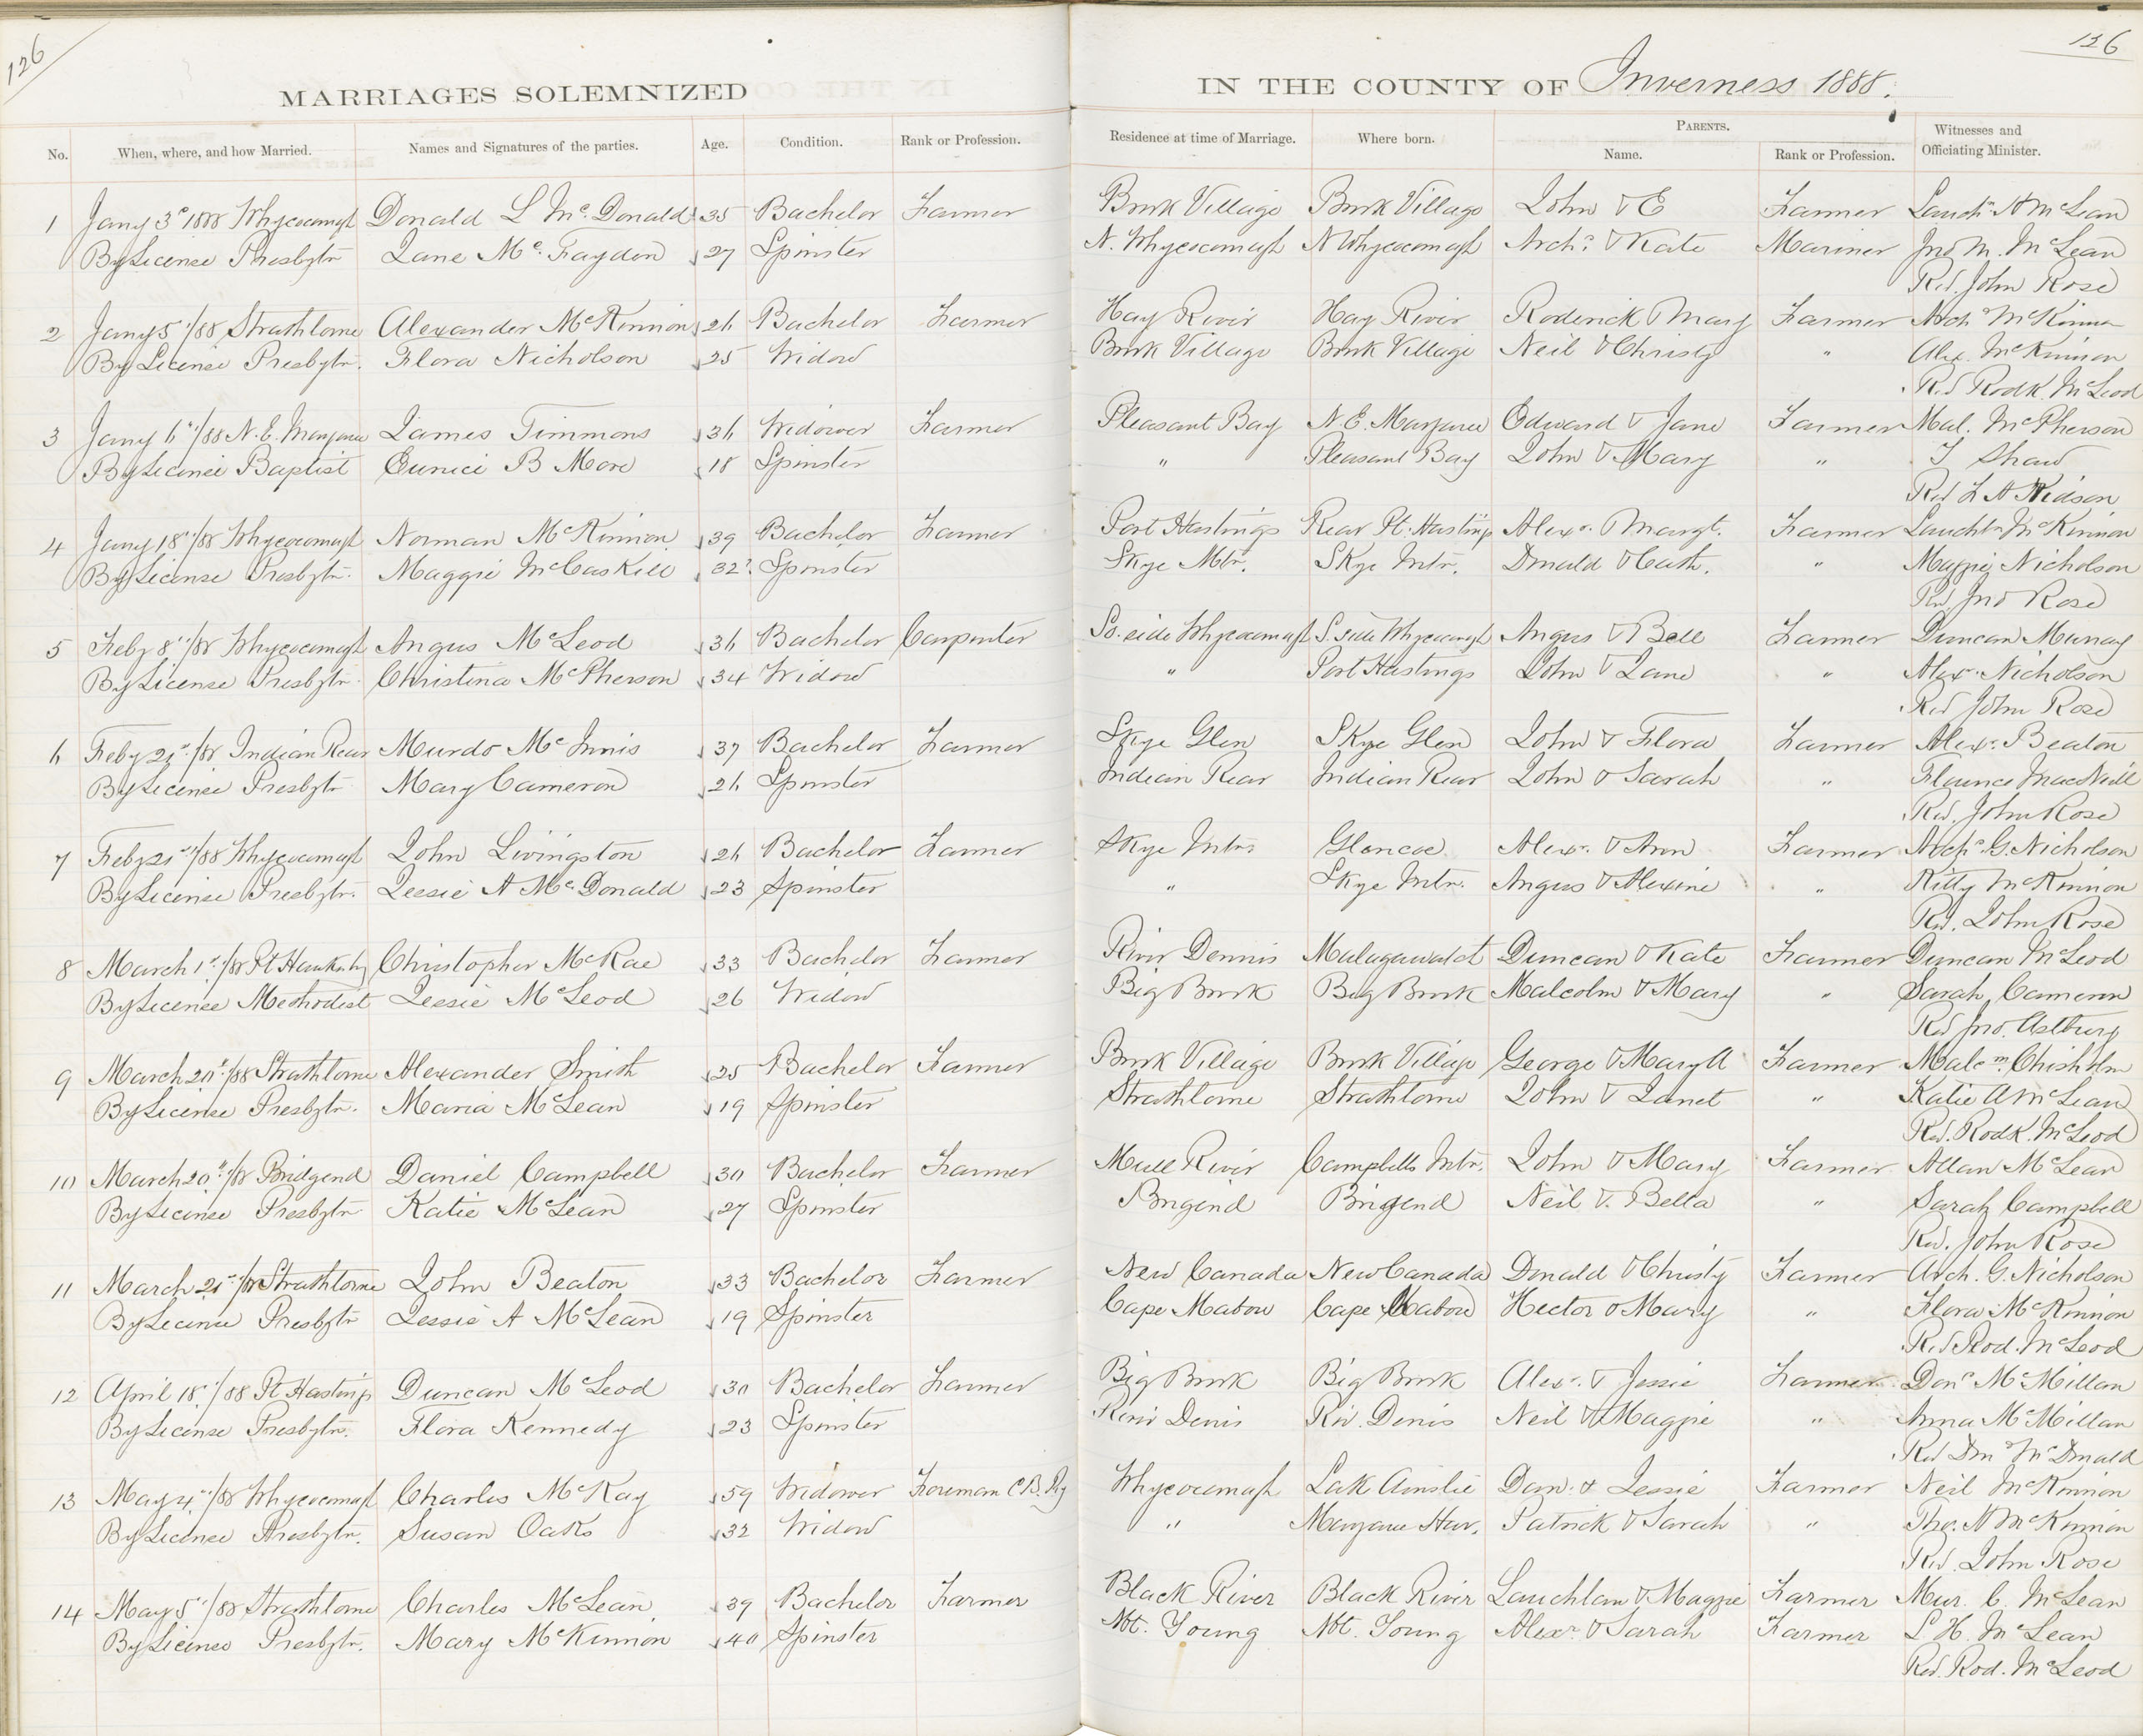 126
126
MARRIAGES SOLEMNIZED IN THE COUNTY OF Inverness 1888.
No. When, where, and how Married. Names and Signatures of the parties. Age. Condition. Rank or Profession. Residence at time of Marriage. Where born. PARENTS. Name. Rank or Profession. Witnesses and Officiating Minister.
1 Jany 3d 1888 Whycocomagh Donald L Mc. Donald 35 Bachelor Farmer Brook Village Brook Village John & E Farmer Lauchn A McLean
By License Presbytn Jane Mc. Fayden 27 Spinster N. Whycocomagh N Whycocomagh Archd & Kate Mariner Jno M. McLean
Rev. John Rose
2 Jany 5th/88 Strathlorne Alexander McKinnon 26 Bachelor Farmer Hay River Hay River Roderick Mary Farmer Arch McKinnon
By License Presbytn. Flora Nicholson 25 Widow Brook Village Brook Village Neil & Christy " Alex. McKinnon
Rev Rodk. McLeod
3 Jany 6th/88 N. E. Margaree James Timmons 36 Widower Farmer Pleasant Bay N. E. Margaree Edward & Jane Farmer Mal. McPherson
By License Baptist Eunice B More 18 Spinster " Pleasant Bay John & Mary " Shaw
Rev
4 Jany 18th/88 Whycocomagh Norman McKinnon 39 Bachelor Farmer Port Hastings Rear Pt. Hastings Alexr. Margt. Farmer Lauchln McKinnon
By License Presbytn. Maggie McCaskill 32 Spinster Skye Mtn. Skye Mtn. Donald & Cath. " Maggie Nicholson
Rev. Jno Rose
5 Feby 8th/88 Whycocomagh Angus McLeod 36 Bachelor Carpenter So. side Whycocomagh S. side Whycocomagh Angus & Bell Farmer Duncan Murray
By License Presbytn. Christina McPherson 34 Widow " Port Hastings John & Jane " Alexr. Nicholson
Rev John Rose
6 Feby 21st/88 Indian Rear Murdo Mc Innis 37 Bachelor Farmer Skye Glen Skye Glen John & Flora Farmer Alexr. Beaton
By License Presbytn Mary Cameron 26 Spinster Indian Rear Indian Rear John & Sarah " Florence MacNeill
Rev. John Rose
7 Feby 21st/88 Whycocomagh John Livingston 26 Bachelor Farmer Skye Mtn. Glencoe Alexr. & Ann Farmer Archd. G. Nicholson
By License Presbytn. Jessie A Mc. Donald 23 Spinster " Skye Mtn. Angus & Alexine " Kitty McKinnon
Rev. John Rose
8 March 1st/88 Pt Hawkesby Christopher McRae 33 Bachelor Farmer River Dennis Malagawatch Duncan & Kate Farmer Duncan McLeod
By License Methodist Jessie McLeod 26 Widow Big Brook Big Brook Malcolm & Mary " Sarah Cameron
Rev Jno. Astbury
9 March 20th/88 Strathlorne Alexander Smith 25 Bachelor Farmer Brook Village Brook Village George & Mary A Farmer Malcm. Chisholm
By License Presbytn. Maria McLean 19 Spinster Strathlorne Strathlorne John & Janet " Katie A McLean
Rev. Rodk. McLeod
10 March 20th/88 Bridgend Daniel Campbell 30 Bachelor Farmer Mull River Campbells Mtn. John & Mary Farmer Allan McLean
By License Presbytn Katie McLean 27 Spinster Brigend Brigend Neil & Bella " Sarah Campbell
Rev. John Rose
11 March 21st/88 Strathlorne John Beaton 33 Bachelor Farmer New Canada New Canada Donald & Christy Farmer Arch. G. Nicholson
By License Presbytn Jessie A McLean 19 Spinster Cape Mabou Cape Mabou Hector & Mary " Flora McKinnon
Rev Rod. McLeod
12 April 18th/88 Pt Hastings Duncan McLeod 30 Bachelor Farmer Big Brook Big Brook Alexr. & Jessie Farmer Dond McMillan
By License Presbytn. Flora Kennedy 23 Spinster River Denis Riv. Denis Neil & Maggie " Anna McMillan
Rev Dn McDonald
13 May 4th/88 Whycocomagh Charles McKay 59 Widower Foreman C B. Ry Whycocomagh Lake Ainslie Dan. & Jessie Farmer Neil McKinnon
By License Presbytn. Susan Oaks 32 Widow " Margaree Har. Patrick & Sarah " Tho. A McKinnon
Rev. John Rose
14 May 5th/88 Strathlorne Charles McLean 39 Bachelor Farmer Black River Black River Lauchlan & Maggie Farmer Mur. C. McLean
By License Presbytn. Mary McKinnon 40 Spinster Mt. Young Mt. Young Alexr. & Sarah Farmer L H. McLean
Rev. Rod. McLeod